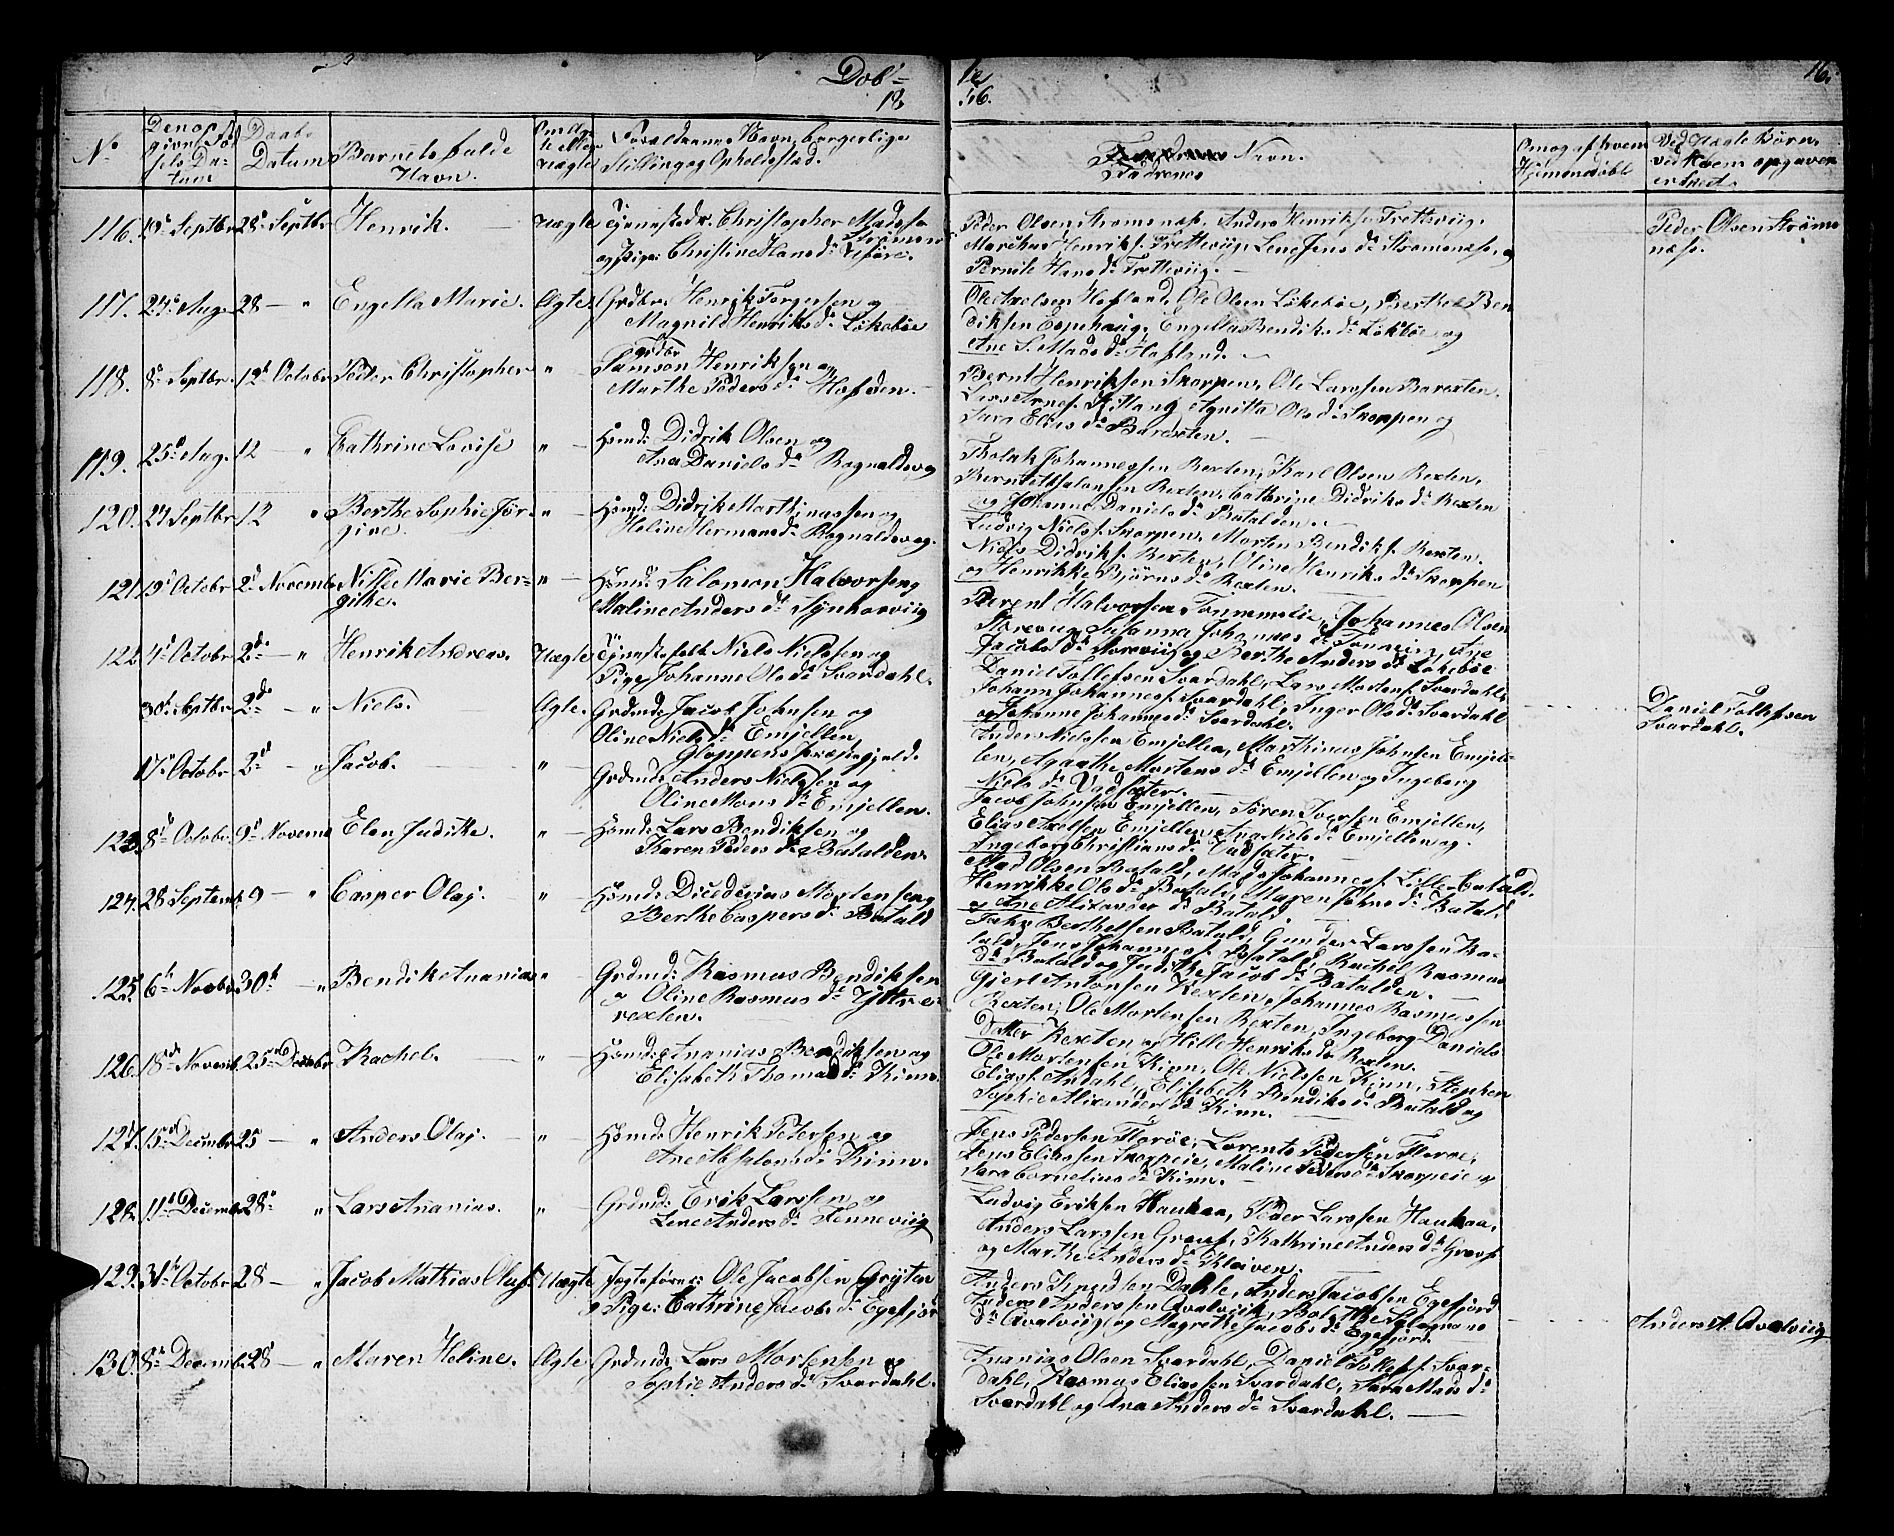 Døb-
te
16.
18
56.
No
Den opgivne Fødsels Datum
Daabs Datum
Barnets fulde Navn.
Om Ægte eller uægte
Forældrenes Navn, borgerlige Stilling og Opholdssted.
Faddrenes Navn.
Om og af hvem Hjemmedøbt
Ved Uægte Børn, ved hvem opgaven er skeet.
116. 19d Septbr 28d Septbr Henrik. Uægte Tjenestedr. Christopher Madsen
og Pige Christine Hansd.
Peder Olsen Strømsnæs. Anders Henriks. Trettevig.
Marthus Henriks. Trettevig, Lene Jensd. Strømsnæs, og
Pernile Hansd. Trettevig.
Peder Olsen Strømsnæs.
117. 24d Aug. 28 — " Engella Marie. Ægte. Grdbr. Henrik Torgersen og
Magnild Henriksd. Løkebøe
Ole Axelsen Hafland, Ole Olsen Løkebøe, Berthel Bendiksen Espehaug, Engella Bendiksd. Løkebøe og
Ane S. Madsd. Hafland.
118. 8d Septbr. 12d Octobr Peder Christopher " — Grdbr Samson Henriksen og
Marthe Pedersd. Hafsøen.
Bernt Henriksen Skorpen, Ole Larssen Barexten.
Agnitta Olsd. Skorpen og
Sara Eliasd. Barexten.
119. 25d Aug. 12 — " Cathrine Lovise " — Hsmd: Didrik Olsen og
Ane Danielsd. Rognaldsvog
Johannessen Rexten, Karl Olsen Rexten,
Bernt Absalonsen Rexten, Cathrine Didriksd. Rexten
og Johanne Danielsd. Batalden.
120. 27 Septbr 12 " Berthe Sophie Jørgine. " — Hsmd: Didrik Marthinussen og
Heline Hermansd. Rognaldsvog.
Ludvig Niels. Skorpen, Morten Bendiks. Rexten.
Niels Didriks. Rexten, Oline Henriksd. Skorpen
og Henrikke Bjørnsd. Rexten.
121. 19d Octobr 2d Novemb. Nille Marie Bergithe. " — Hsmd: Salomon Halvorsen og
Maline Andersd. Synharviig
Berent Halvorsen Tonnemlie, Johannes Olsen
Storeviig, Susanne Johannesd. Tonning, Ane
Jacobsd. Storeviig og Berthe Andersd. Løkebøe
122. 4d Octobr 2d — " Henrik Andreas. Uægte Tjenestefolk Niels Nielssen og
Pige Johanne Olsd. Svardahl.
Daniel Tollefsen Svardahl, Lars Mortens. Svardahl,
Johann Johannes. Svardahl, Inger Olsd. Svardahl
og Johanne Johannesd. Svardahl.
Daniel Tollefsen Svardahl.
30d Septbr. 2d — " Niels. Ægte. Grdmd: Jacob Johnsen og
Oline Nielsd. Emjellen
Gloppens Præstegjeld.
Anders Nielssen Emjellen, Marthinus Johnsen Emjellen, Agathe Mortensd. Emjellen og Ingeborg
Nielsd. Vadsæter.
17d Octobr 2d — " Jacob. " — Grdmd: Anders Nielssen og
Oline Monsd. Emjellen.
Jacob Johnsen Emjellen, Søren Iversen Emjellen,
Elias Axelsen Emjellen, Ane Nielsd. Emjellen og
Ingeborg Christiansd. Vadsæter.
123. 8d Octobr 9d Novemb Elen Judithe. " — Hsmd: Lars Bendiksen og
Karen Pedersd. Batalden.
Mad Olsen Batald, Mads Johannes. Lille Batald.
Henrikke Olsd. Batald, Maren Johnsd. Batald.
og Ane Alexanderd. Batald.
124. 28 Septemb 9 — " Casper Olaj. " — Hsmd: Mortensen og
Berthe Caspersd. Batald
Berthelsen Batald, Gunder Larssen Batald, Jens Johannes. Batald, Rachel Rasmusd. Batald og Judithe Jacobsd. Batalden.
125. 6te Novbr. 30te — " Bendik Ananias " — Grdmd: Rasmus Bendiksen
og Oline Rasmusd. Yttrerexten.
Gjert Antonsen Rexten, Johannes Rasmussen
Rexten, Ole Mortensen Rexten, Ingeborg Daniels
Datter Rexten og Hille Henriksd. Rexten.
126. 18de Novemb. 25de Decembr Rachel. " Hsmd: Ananias Bendiksen og
Elisabeth Thomasd. Kinn.
Ole Mortensen Kinn, Ole Nielssen Kinn, Stephen
Elias. Ardahl, Elisabeth Bendiksd. Batald og
Sophie Alexanderd. Kinn.
127. 15d Decembr 25 — " Anders Olaj. " Hsmd: Henrik Petersen og
Ane Absalonsd. Kinn.
Jens Pedersen Florøe, Lorents Pedersen Florøe,
Jens Eliassen Skorpeie, Maline Pedersd. Skorpeie og
Sara Corneliusd. Kinn.
128. 11d Decemb 28d " Lars Ananias. " Grdmd: Erik Larssen og
Lene Andersd. Tenneviig
Ludvig Eriksen Haukaa, Peder Larssen Haukaa,
Anders Larssen Grov, Kathrine Andersd. Grov
og Marthe Andersd. Kleiven.
129. 31te Octobr 28 — " Jacob Mathias Oluf Uægte Jægtefører: Ole Jacobsen Gryten
& Pige: Cathrine Jacobsd. Egefjord
Anders Knudsen Dahle, Anders Jacobsen Egefjord
Anders Anderssen Qvalviig, Salomons
d. Qvalviig og Magrethe Jacobsd. Egefjord.
Anders A. Qvalviig
130. 8d Decemb 28 — " Maren Heline. Ægte. Grdmd: Lars Mortensen og
Sophie Andersd. Svardahl.
Ananias Olsen Svardahl, Daniel Tollefs. Svardahl, Rasmus Eliassen Svardahl, Sara Madsd.
Svardahl og Ane Andersd. Svardahl.